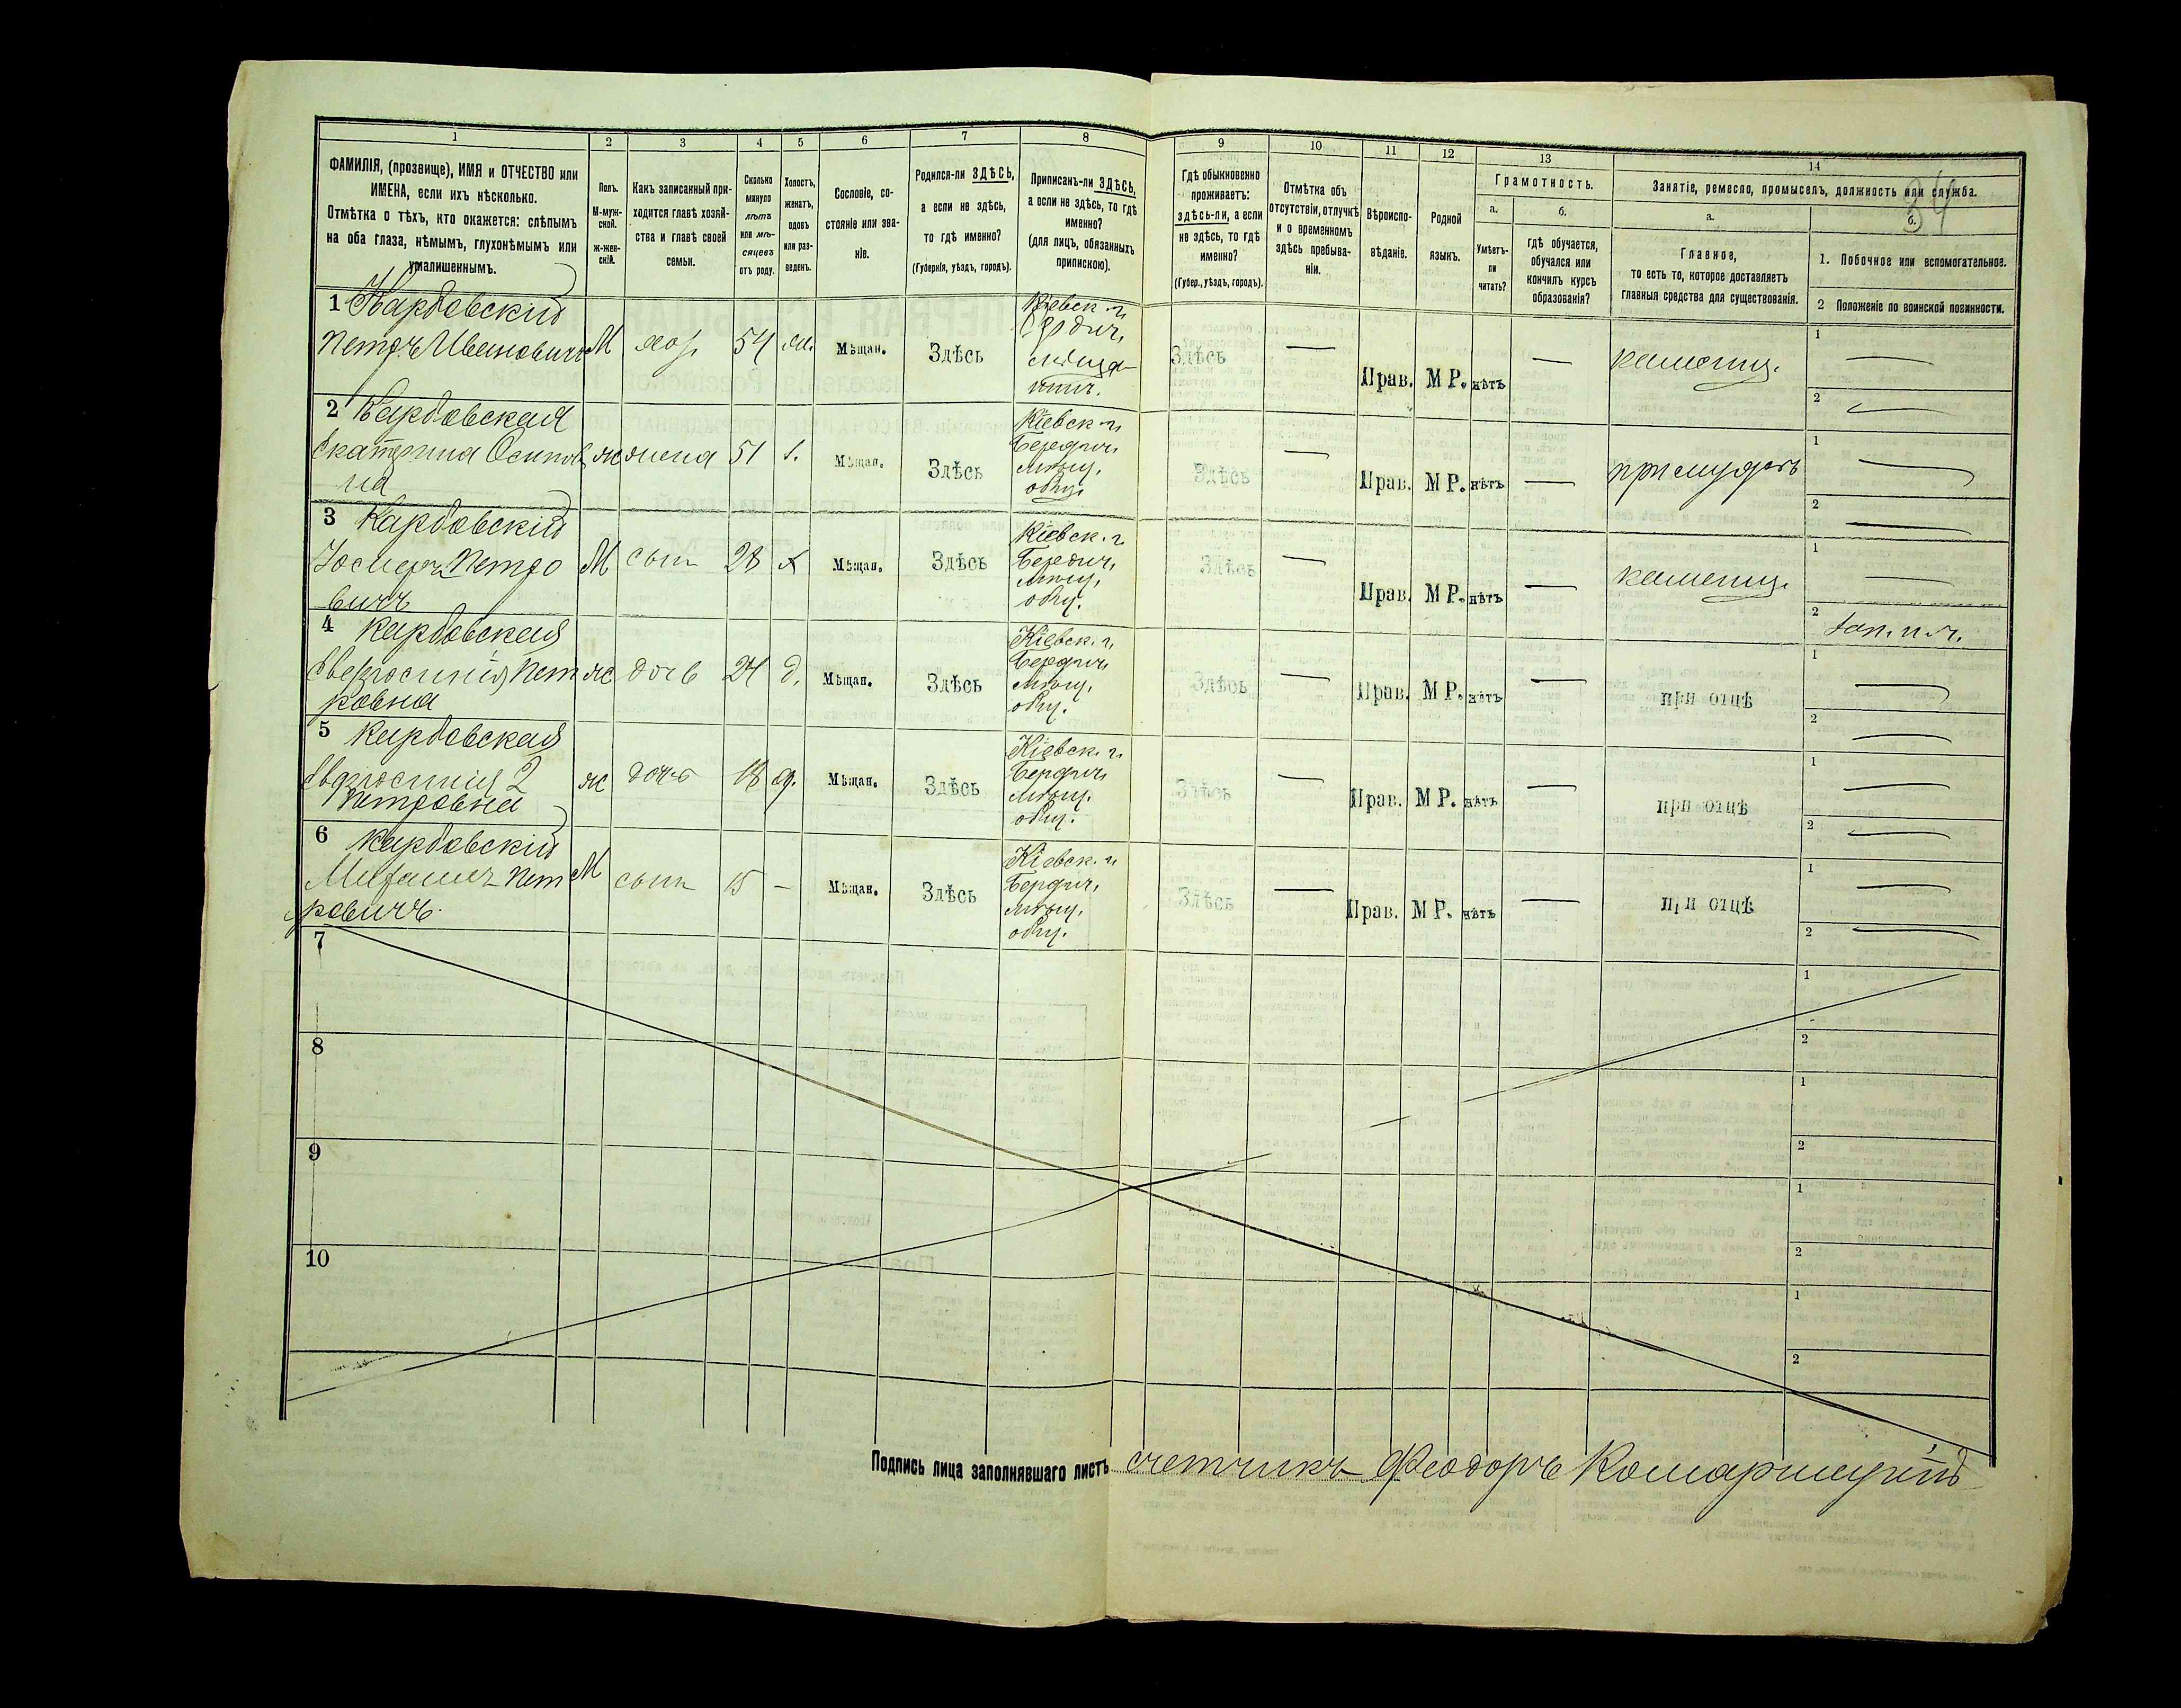 1 2 3 4 5 6 7 8 9 10 11 12 13 14
ФАМИЛІЯ, (прозвище), ИМЯ и ОТЧЕСТВО или
ИМЕНА, если ихъ нѣсколько.
Отмѣтка о тѣхъ, кто окажется: слѣпымъ
на оба глаза, нѣмымъ, глухонѣмымъ или
умалишеннымъ.
Полъ.
М-муж-
ской.
ж-жен-
скій.
Какъ записанный при-
ходится главѣ хозяй-
ства и главѣ своей
семьи.
Сколько
минуло
лѣтъ
или мѣ-
сяцевъ
отъ роду.
Холостъ,
женатъ,
вдовъ
или раз-
веденъ.
Сословіе, со-
стояніе или зва-
ніе.
Родился-ли ЗДѢСЬ,
а если не здѣсь,
то гдѣ именно?
(Губернія, уѣздъ, городъ).
Приписанъ-ли ЗДѢСЬ,
а если не здѣсь, то гдѣ
именно?
(для лицъ, обязанныхъ
припискою).
Гдѣ обыкновенно
проживаетъ:
здѣсь-ли, а если
не здѣсь, то гдѣ
именно?
(Губер., уѣздъ, городъ).
Отмѣтка объ
отсутствіи, отлучкѣ
и о временномъ
здѣсь пребыва-
ніи.
Вѣроиспо-
вѣданіе.
Родной
языкъ.
Грамотность.
а. б.
Умѣетъ-
ли
читать?
гдѣ обучается,
обучался или
кончилъ курсъ
образованія?
Занятіе, ремесло, промыселъ, должность или служба.
34
а. б.
Главное,
то есть то, которое доставляетъ
главныя средства для существованія.
1. Побочное или вспомогательное.
2 Положеніе по воинской повинности.
1 Карбовскій
Петръ Ивановичъ М хоз. 54 Мѣщан. Здѣсь
Кіевск. г.
Здѣсь — Прав. М Р. нѣтъ — каменщ.
1 —
2 —
2 Карбовская
Екатерина Осипов
на
ж жена 51 Мѣщан. Здѣсь
Кіевск. г.
Бердич.
мѣщ.
общ.
Здѣсь — Прав. М Р. нѣтъ —
1 —
2 —
3 Карбовскій
Іосифъ Петро
вичъ
М сынъ 28 х Мѣщан. Здѣсь
Кіевск. г.
Бердич.
мѣщ.
общ.
Здѣсь — Прав. М Р. нѣтъ — каменщ.
1 —
2
4 Карбовская
Евфросинія Пет
ровна
ж дочь 24 д. Мѣщан. Здѣсь
Кіевск. г.
Бердич.
мѣщ.
общ.
Здѣсь — Прав. М Р. нѣтъ — при отцѣ
1 —
2 —
5 Карбовская
Евфросинія 2
Петровна
ж дочь 18 д. Мѣщан. Здѣсь
Кіевск. г.
Бердич.
мѣщ.
общ.
Здѣсь — Прав. М Р. нѣтъ — при отцѣ
1 —
2 —
6 Карбовскій
Михаилъ Пет
ровичъ
М сынъ 15 — Мѣщан. Здѣсь
Кіевск. г.
Бердич.
мѣщ.
общ.
Здѣсь — Прав. М Р. нѣтъ — при отцѣ
1 —
2 —
7
1
2
8
1
2
9
1
2
10
1
2
Подпись лица заполнявшаго листъ счетчикъ Феодоръ Комарницкій